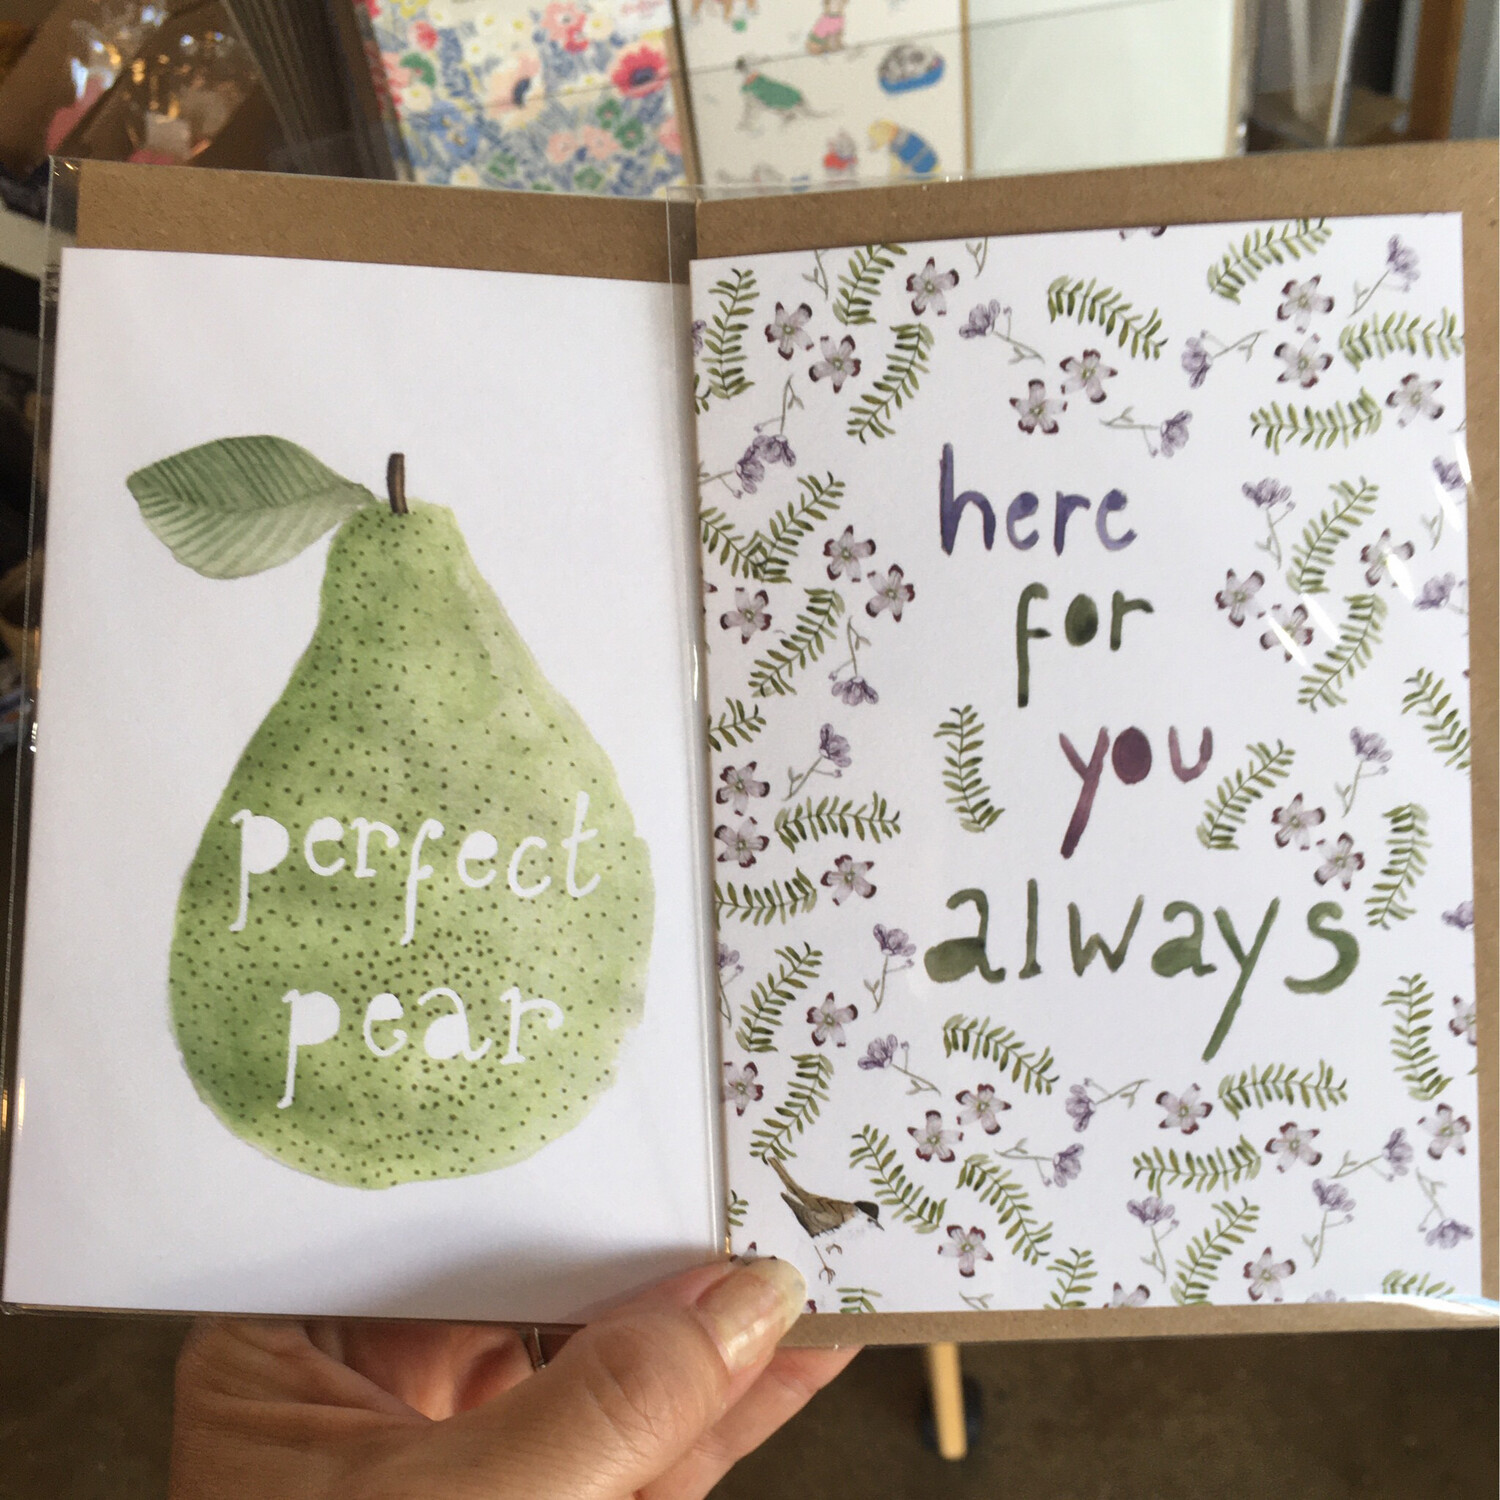 perfect
pear
here
for
you
always